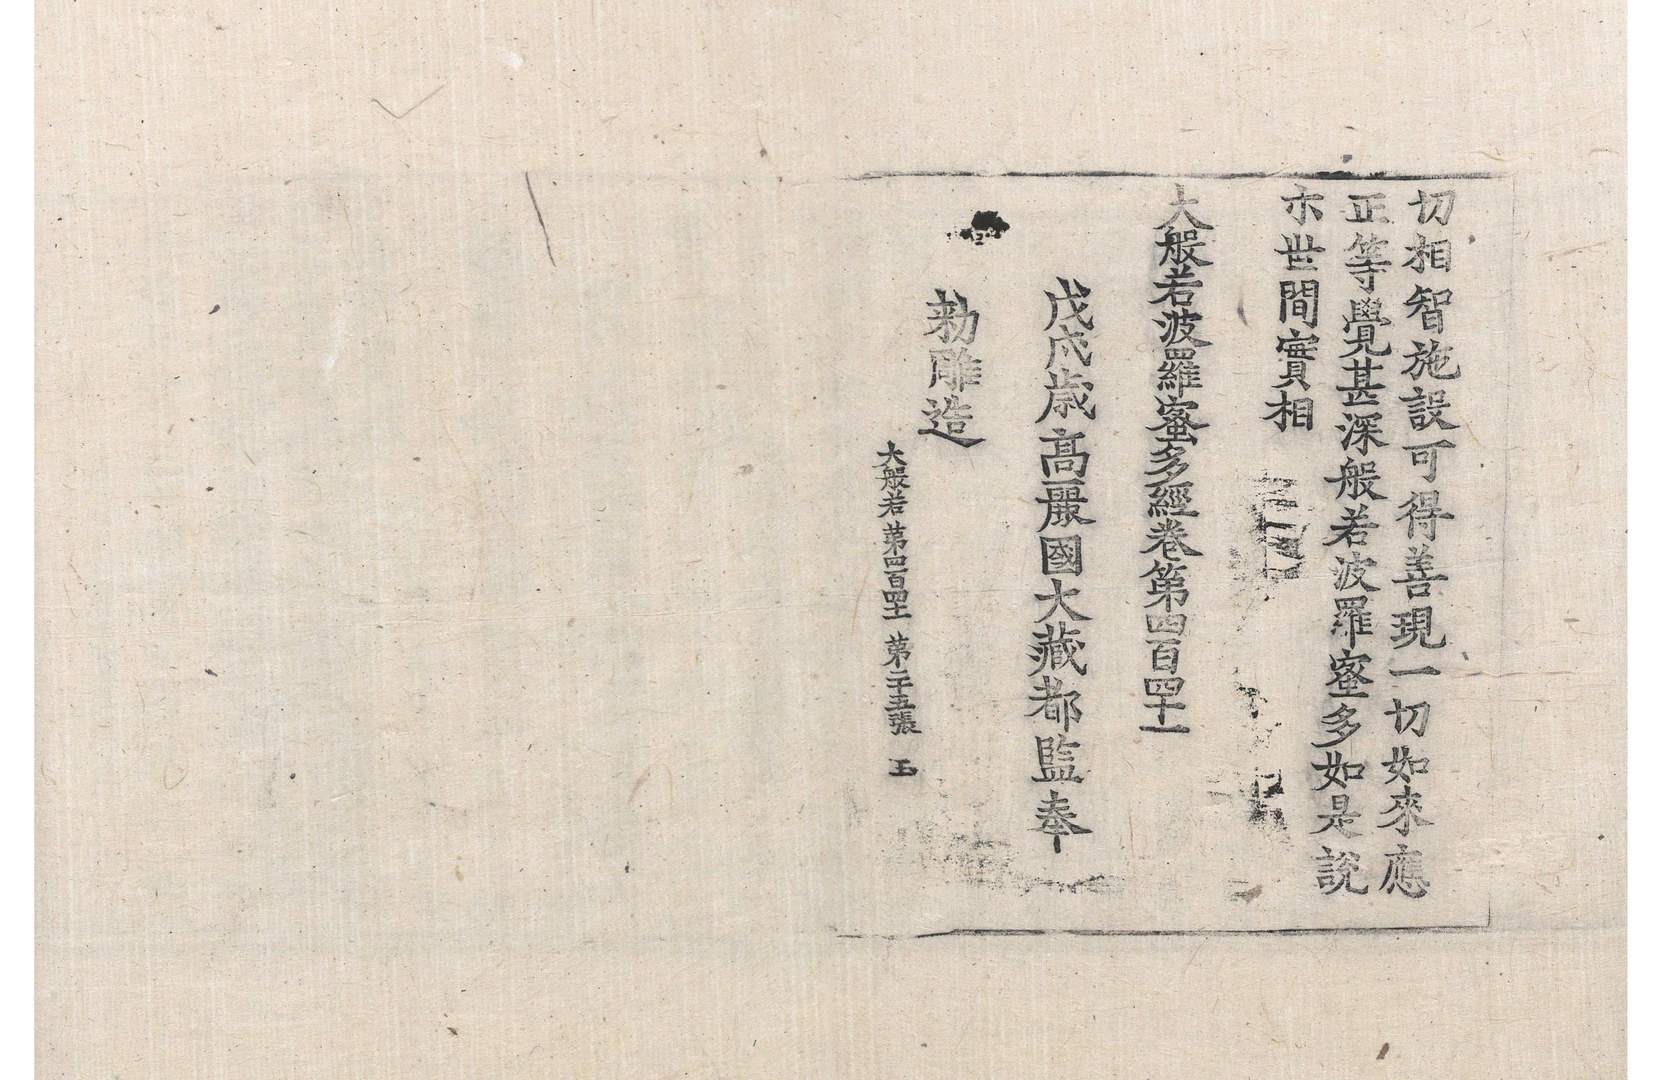 切相智施設可得善現一切如來應
正等覺甚深般若波羅蜜多如是說
示世間實相
大般若波羅蜜多經卷第四百四十一
戊戌歳高麗國大藏都監奉
勑雕造
大般若第四百四十一 第二十五張 玉